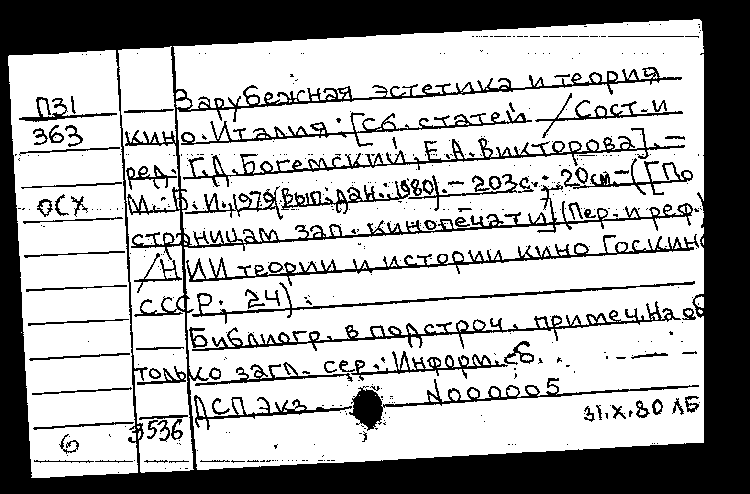 П31 Зарубежная эстетика и теория
363 кино. Италия: [Сб. статей / Сост. и
ред. Г.Д. Богемский, Е.А. Викторова]. —
ОСХ М.: Б.И., 1979 (вып. дан.: 1980). — 203 с.; 20 см. — ([По
страницам зап. кинопечати] (Пер. и реф.)
/ НИИ теории и истории кино Госкино
СССР; 24).
Библиогр. в подстроч. примеч. На об
только загл. сер.: Информ. сб.
ДСП. Экз. N000005
6 3536 31.X.80 ЛБ